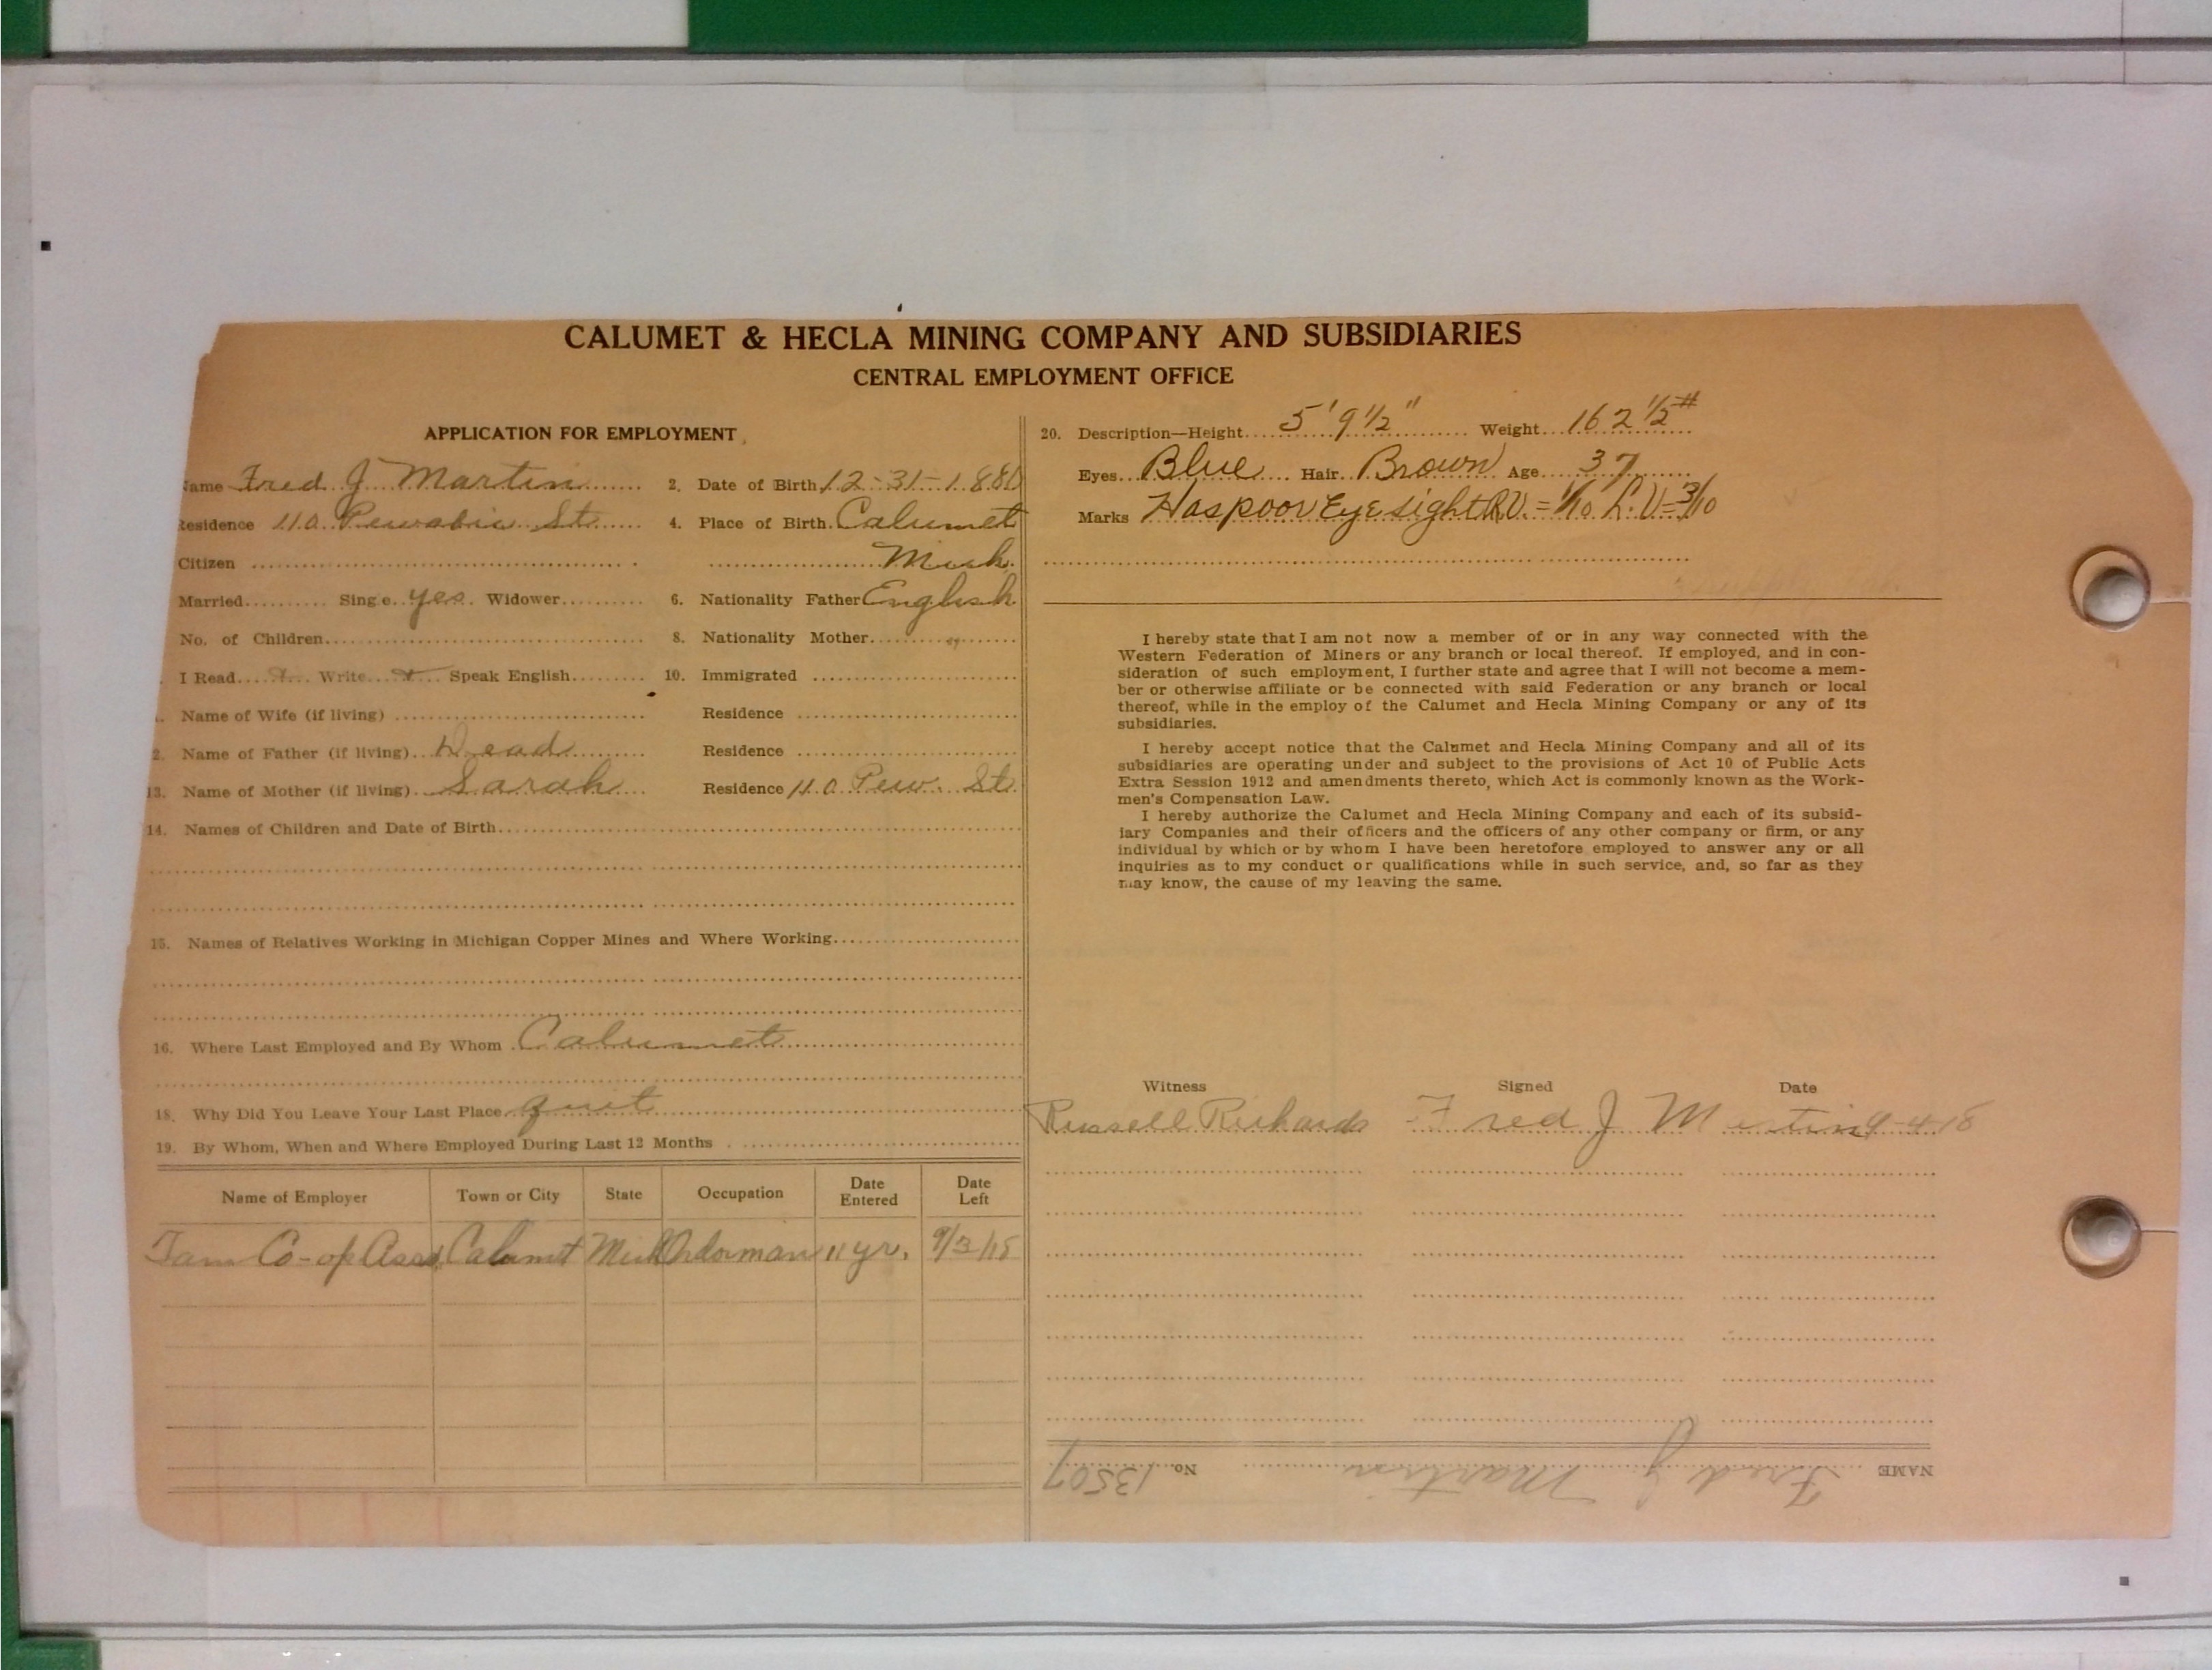 CALUMET & HECLA MINING COMPANY AND SUBSIDIARIES
CENTRAL EMPLOYMENT OFFICE
APPLICATION FOR EMPLOYMENT
ame Fred J Martin 2. Date of Birth 12-31-1880
Residence 110 Pewabic St 4. Place of Birth Calumet
Citizen Mich.
Married Single yes. Widower 6. Nationality Father English
No. of Children 8. Nationality Mother
I Read Write Speak English 10. Immigrated
Name of Wife (if living) Residence
2. Name of Father (if living) Dead Residence
13. Name of Mother (if living) Sarah Residence 110 Pew. St
14. Names of Children and Date of Birth
15. Names of Relatives Working in Michigan Copper Mines and Where Working
16. Where Last Employed and By Whom Calumet
18. Why Did You Leave Your Last Place quit
19. By Whom, When and Where Employed During Last 12 Months
Name of Employer Town or City State Occupation Date Entered Date Left
Tam Co-op Assn Calumet Mich Orderman 11 yr. 9/3/18
20. Description—Height 5' 9 1/2" Weight 162 1/2#
Eyes Blue Hair Brown Age 37
Marks Has poor Eyesight R.V. = 1/10 L.V = 3/10
I hereby state that I am not now a member of or in any way connected with the
Western Federation of Miners or any branch or local thereof. If employed, and in con-
sideration of such employment, I further state and agree that I will not become a mem-
ber or otherwise affiliate or be connected with said Federation or any branch or local
thereof, while in the employ of the Calumet and Hecla Mining Company or any of its
subsidiaries.
I hereby accept notice that the Calumet and Hecla Mining Company and all of its
subsidiaries are operating under and subject to the provisions of Act 10 of Public Acts
Extra Session 1912 and amendments thereto, which Act is commonly known as the Work-
men's Compensation Law.
I hereby authorize the Calumet and Hecla Mining Company and each of its subsid-
iary Companies and their officers and the officers of any other company or firm, or any
individual by which or by whom I have been heretofore employed to answer any or all
inquiries as to my conduct or qualifications while in such service, and, so far as they
may know, the cause of my leaving the same.
Witness Signed Date
Russell Richards Fred J Martin 9-4-18
NAME Fred J Martin No. 13507